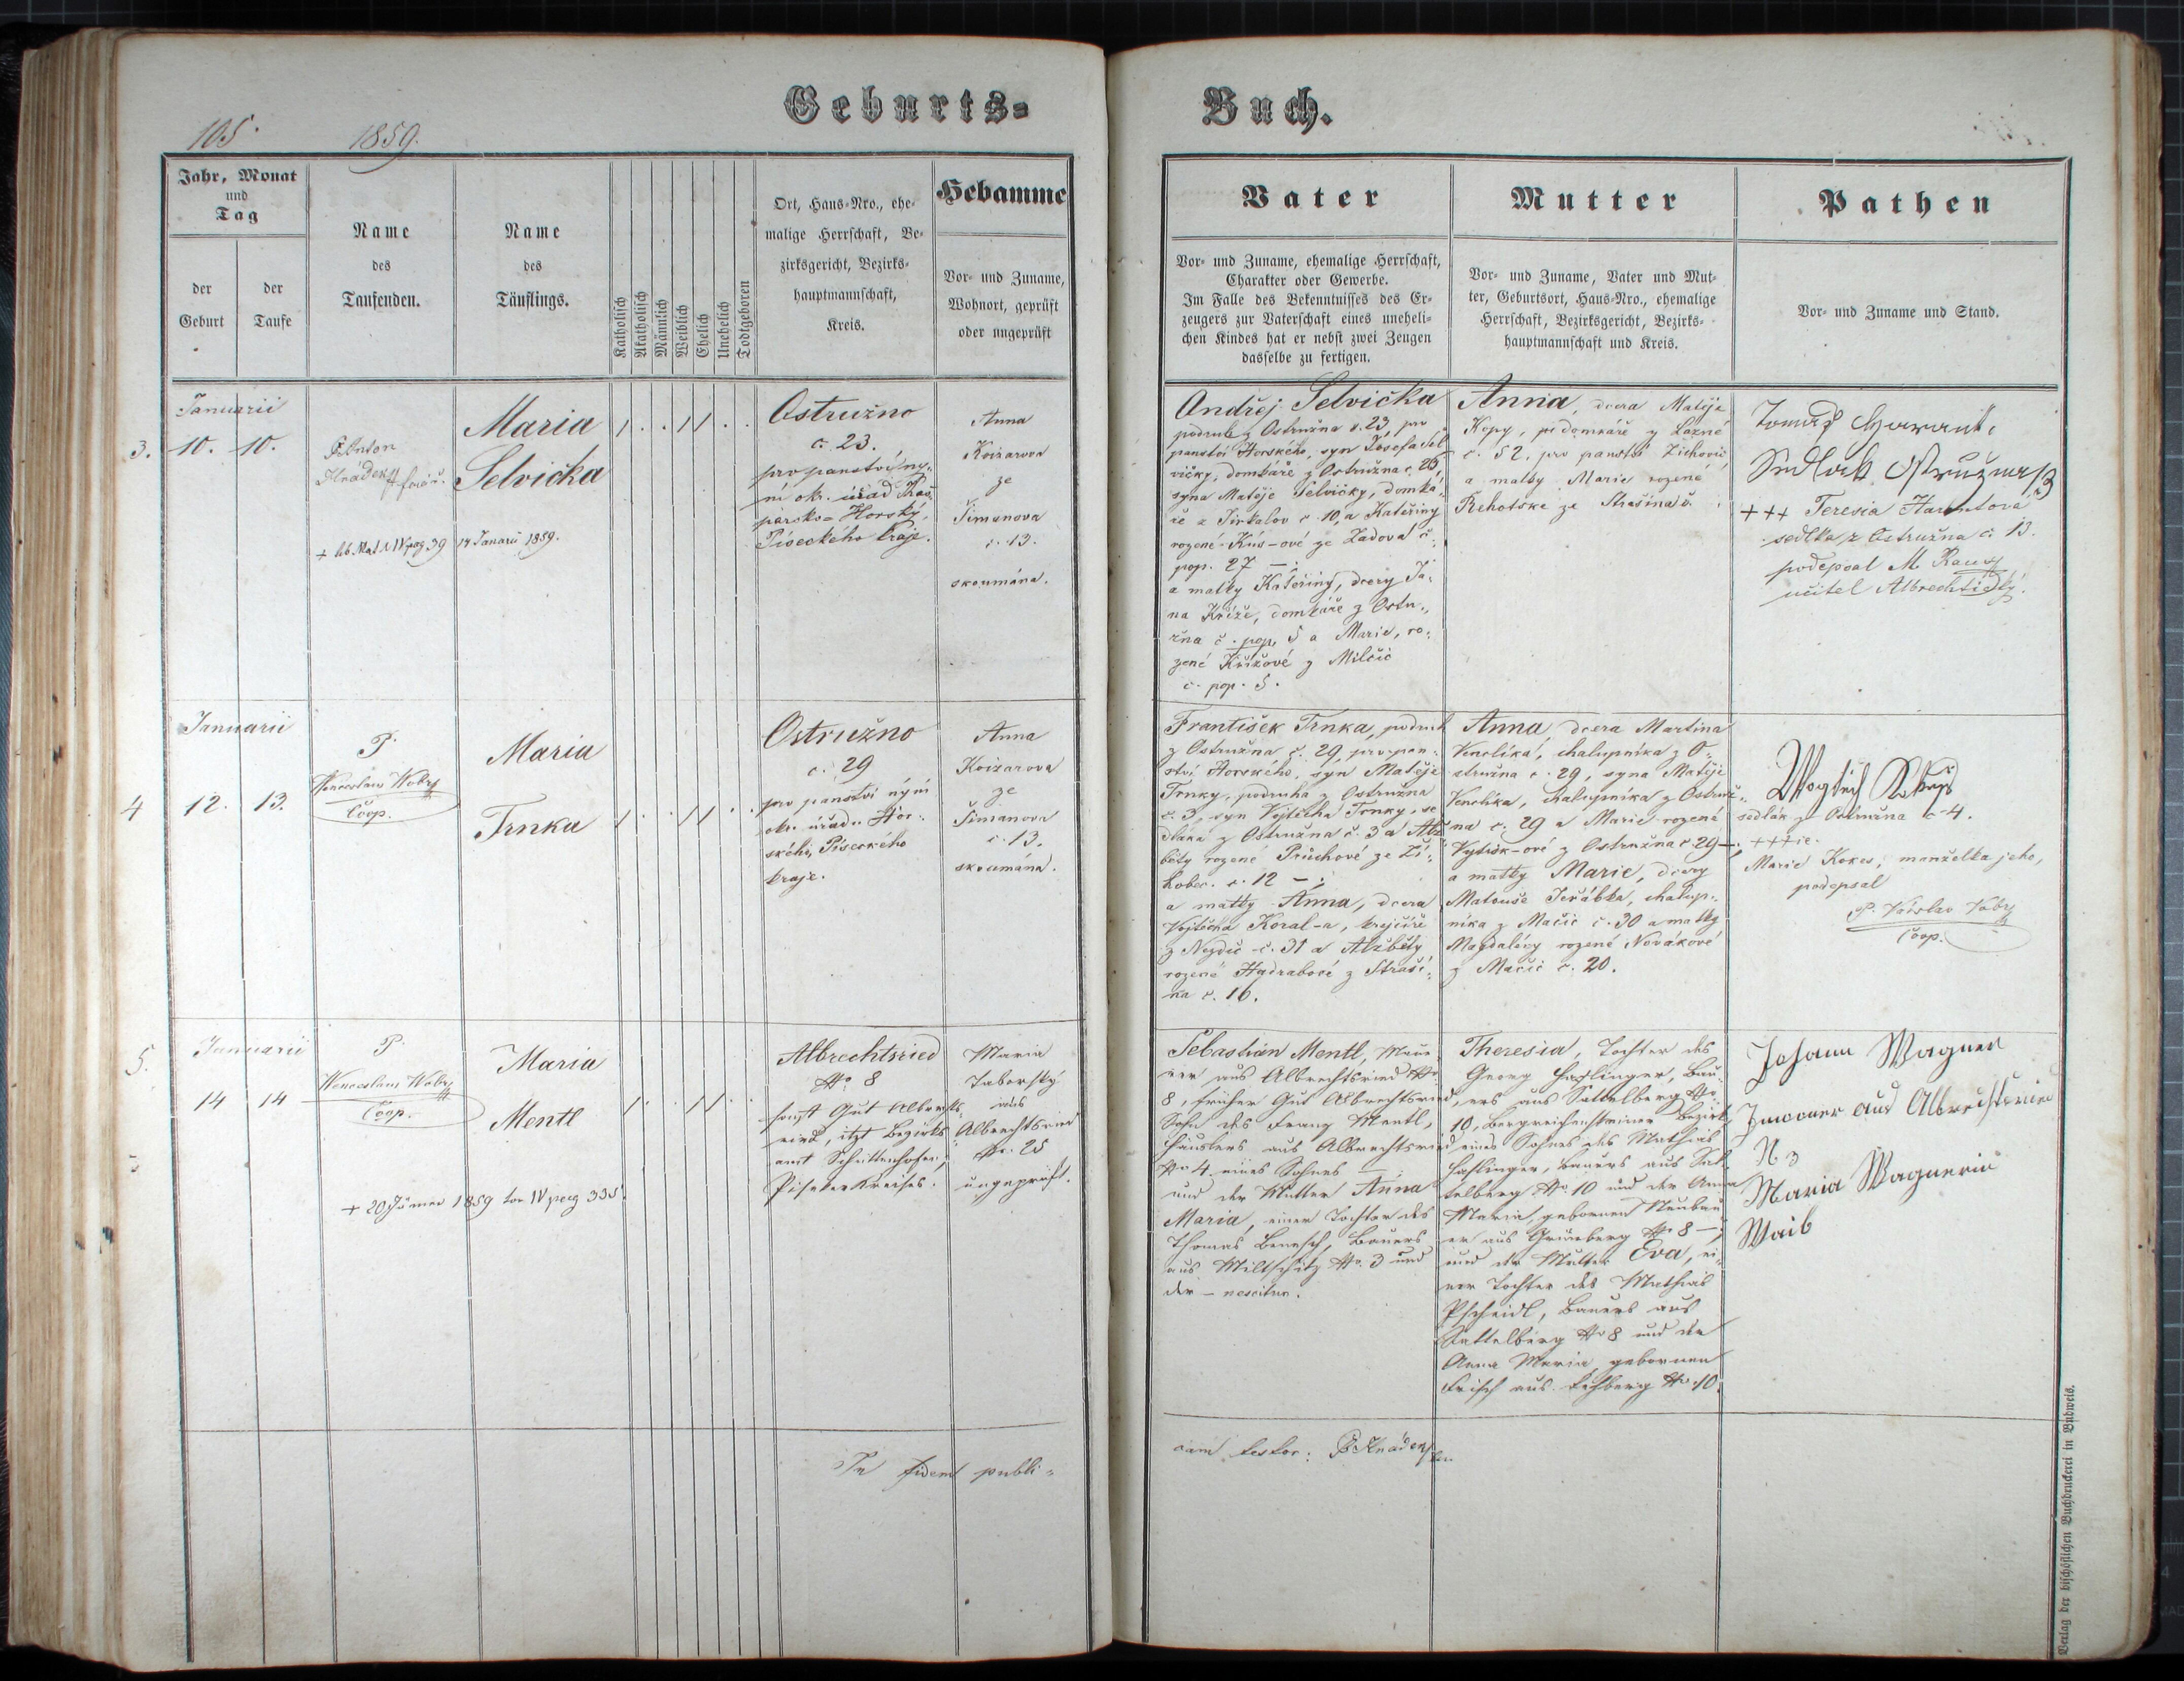 Geburts-
Buch.
105.
1859.
Jahr, Monat
und
Tag
der
Geburt
der
Taufe
Name
des
Taufenden.
Name
des
Täuflings.
Katholisch
Akatholisch
Männlich
Weiblich
Ehelich
Unehelich
Todtgeboren
Ort, Haus-Nro., ehe-
malige Herrschaft, Be-
zirksgericht, Bezirks-
hauptmannschaft,
Kreis.
Hebamme
Vor- und Zuname,
Wohnort, geprüft
oder ungeprüft
Vater
Vor- und Zuname, ehemalige Herrschaft,
Charakter oder Gewerbe.
Im Falle des Bekenntnisses des Er-
zeugers zur Vaterschaft eines uneheli-
chen Kindes hat er nebst zwei Zeugen
dasselbe zu fertigen.
Mutter
Vor- und Zuname, Vater und Mut-
ter, Geburtsort, Haus-Nro., ehemalige
Herrschaft, Bezirksgericht, Bezirks-
hauptmannschaft und Kreis.
Pathen
Vor- und Zuname und Stand.
3.
Januarii
10. 10.
Anton
Hrádek
farář.
Maria
Selvička
14 Januarii 1859.
Ostružno
č. 23.
pro panství ny-
ní okr. úřad Kaš-
parsko-Horský,
Píseckého kraje.
Anna
Koizarova
ze
Šimanova
č. 13.
skoumána.
Andřej Selvička
podruh z Ostružna č. 23, pro
panství Horského, syn Josefa Sel
vičky, domkáře z Ostružna č. 26,
syna Matěje Selvičky, domká-
ře z Jirkalov č. 10, a Kateřiny
pop. 27 —;
a matky Kateřiny, dcery Ja-
na Kříže, domkáře z Ostru-
žna č. pop. 5 a Marie, ro-
zené Křížové z Milčic
č. pop. 5.
Anna, dcera Matěje
Kopy, domkáře z Lazné
č. 52, pro panství Žichovic
a matky Marie rozené
Řehořské ze Strašína č.
Sedlak
+++ Teresia
sedlka z Ostružna č. 13.
podepsal M. Rauš
učitel Albrechtický.
4
Januarii
12. 13.
P.
Wenceslaus Wobry
Coop.
Maria
Trnka
Ostružno
č. 29
pro panství nýní
okr. úřadu Hor-
ského, Píseckého
kraje.
Anna
Koizarova
ze
Šimanova
č. 13.
skoumána.
František Trnka, podruh
z Ostružna č. 29, pro pan-
ství Horského, syn Matěje
Trnky, podruha z Ostružna
č. 3, syn Vojtěcha Trnky, se
dláka z Ostružna č. 3 a Alž
běty rozené Průchové ze Ži-
hobec č. 12 —;
a matky Anna, dcera
Vojtěcha Koral-a, krejčíře
z Nezdic č. 31 a Alžběty
rozené Hadrabové z Straší-
na č. 16.
Anna, dcera Martina
Venclíka, chalupníka z O-
stružna č. 29, syna Matěje
Venclíka, chalupníka z Ostruž-
na č. 29 a Marie rozené
Vytisk-ové z Ostružna č. 29 —;
a matky Marie, dcery
Matouše Jeřábka, chalup-
níka z Mačic č. 30 a matky
Magdalény rozené Novákové
z Mačic č. 20.
sedlák z Ostružna č. 4.
Marie Kokes, manželka jeho,
podepsal
P. Václav Vobry
Coop.
5.
Januarii
14 14
P.
Wenceslaus Wobry
Coop.
Maria
Mentl
+ 20 Jänner 1859 tom IV pag 335.
Albrechtsried
No. 8
sonst Gut Albrechts-
ried, itzt Bezirks-
amt Schüttenhofen,
Piseker Kreises.
Maria
Taborský
aus
Albrechtsried
No. 25
ungeprüft.
Sebastián Mentl, Mau-
rer aus Albrechtsried No.
8, früher Gut Albrechtsried,
Sohn des Franz Mentl,
Häuslers aus Albrechtsried
No 4 eines Sohnes —;
und der Mutter Anna
Maria, einer Tochter des
Thomas Benesch, Bauers
aus Miltschitz No. 3 und
der — nescitur.
Theresia, Tochter des
Georg Haslinger, Bau-
ers aus Sattelberg No.
10, Bergreichensteiner Bezirk,
eines Sohnes des Mathias
Haslinger, Bauers aus Sat-
telberg No. 10 und der Anna
Maria, gebornen Neubau-
er aus Grünberg No 8 —;
und der Mutter Eva, ei-
ner Tochter des Mathias
Pscheidl, Bauers aus
Sattelberg No 8 und der
Anna Maria, gebornen
Frisch aus No. 10.
Johann Wagner
Inwoner aus Albrechtsried
N. 3
Maria Wagnerin
Waib
In fidem publi-
cam testor:
Verlag der bischöflichen Buchdruckerei in Budweis.